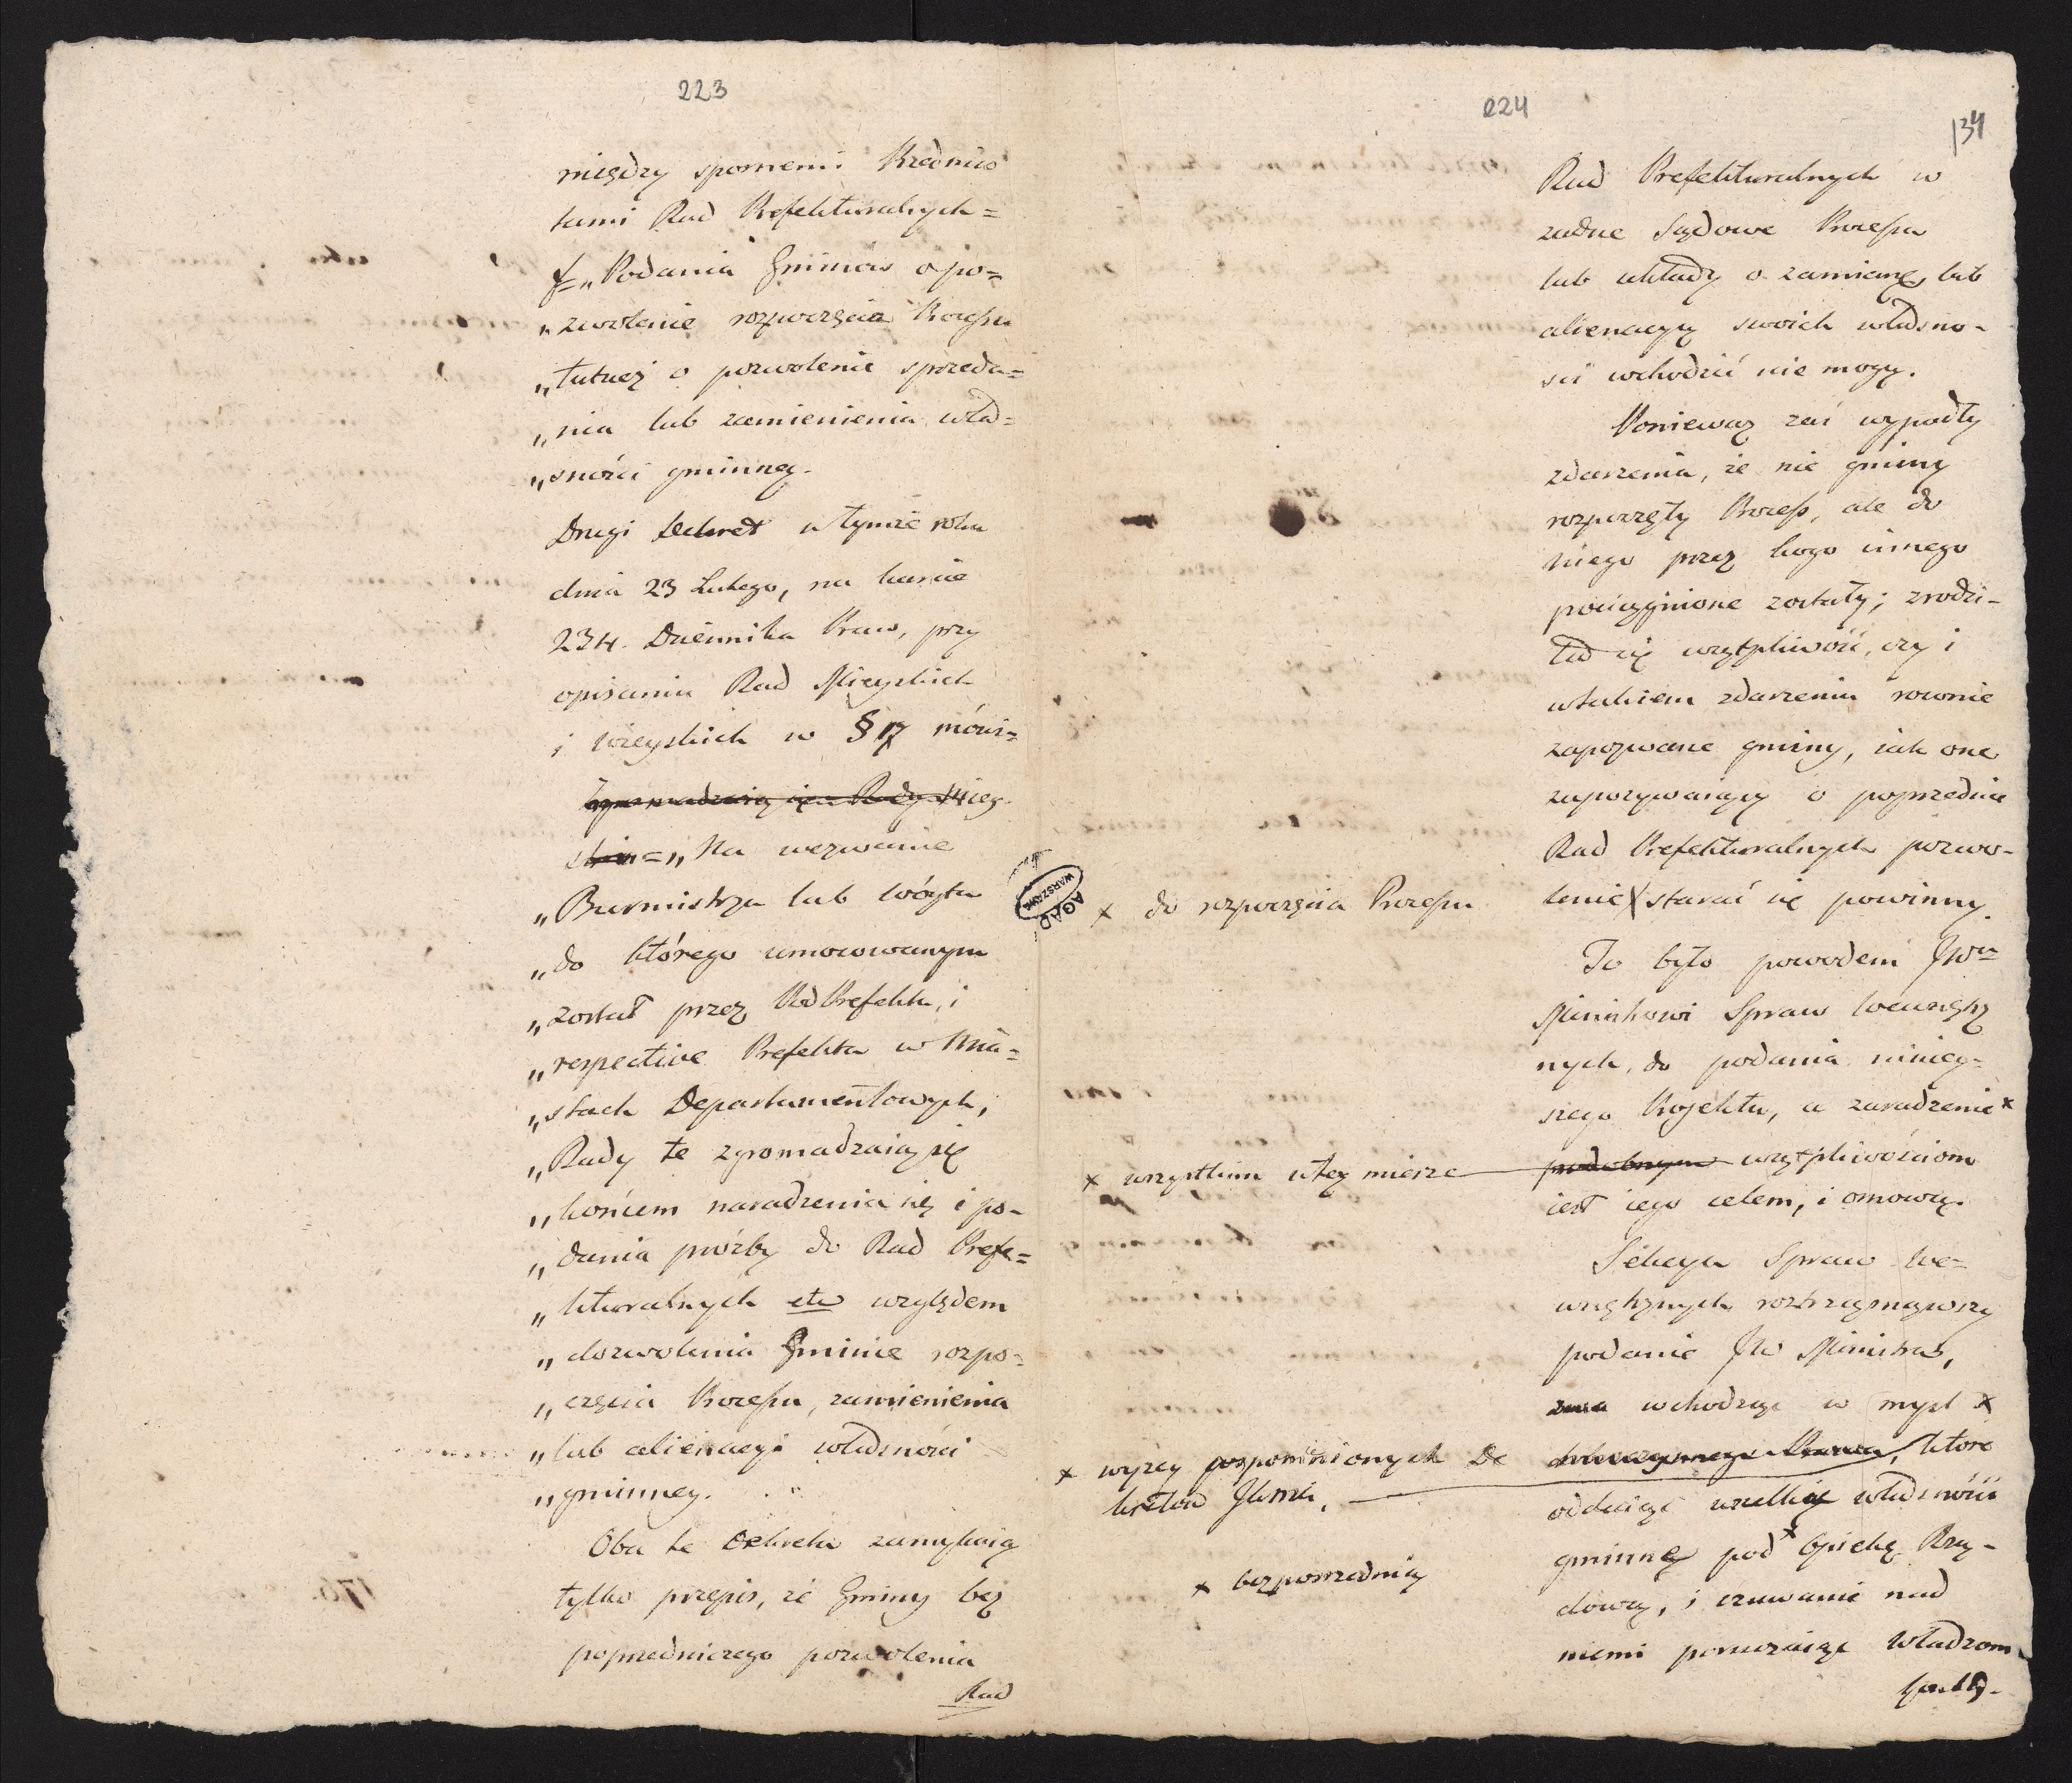 223
między spornemi Przedmio
tami Rad Prefekturalnych =
f „Podania Gminów o po=
„zwolenie rozpoczęcia Processu
„tudzież o pozwolenie sprzeda=
„nia lub zamienienia wła=
„sności gminney.
Drugi Dekret w tymże roku
dnia 23 Lutego, na karcie
234. Dziennika Praw, przy
opisaniu Rad Mieyskich
i wieyskich w § 17 mówi=
zgromadzaią się Rady Miey
skie = „Na wezwanie
„Burmistrza lub Wóyta
„do którego umocowanym
„został przez PodPrefekta, i
„respective Prefekta w Mia=
„stach Departamentowych,
„Rady te zgromadzaią się
„końcem naradzenia się i po-
„dania proźby do Rad Prefe=
„kturalnych etc względem
„dozwolenia Gminie rozpo=
„częcia Processu, zamienienia
„lub alienacyi własności
„gminney.
Oba te Dekreta zamykaią
tylko przepis, że Gminy bez
poprzedniczego pozwolenia
Rad
224
134
Rad Prefekturalnych w
żadne Sądowe Processa
lub układy o zamianę, lub
alienacyą swoich własno-
ści wchodzić nie mogą.
Ponieważ zaś wypadły
zdarzenia, że nie gminy
rozpoczęły Process, ale do
niego przez kogo innego
pociągnione zostały; zrodzi-
ła się wątpliwość, czy i
w takiem zdarzeniu rownie
zapozwane gminy, iak one
zapozywaiący o poprzednie
Rad Prefekturalnych pozwo-
lenie x starać się powinny.
x do rozpoczęcia Processu
To było powodem JWu
Ministrowi Spraw Wewnętrz
nych, do podania niniey-
szego Projektu, a zaradzenie x
x wszystkim w tey mierze
podobnym wątpliwościom
iest iego celem, i osnową.
Sekcya Spraw We=
wnętrznych roztrząsnąwszy
podanie JW Ministra,
wchodząc w myśl x
x wyżey pospomnionych De
kretow
które
oddaiąc wszelkie własności
gminne pod x Opiekę Rzą-
x bezposrzednią
dową, i czuwanie nad
niemi poruczaiąc Władzom